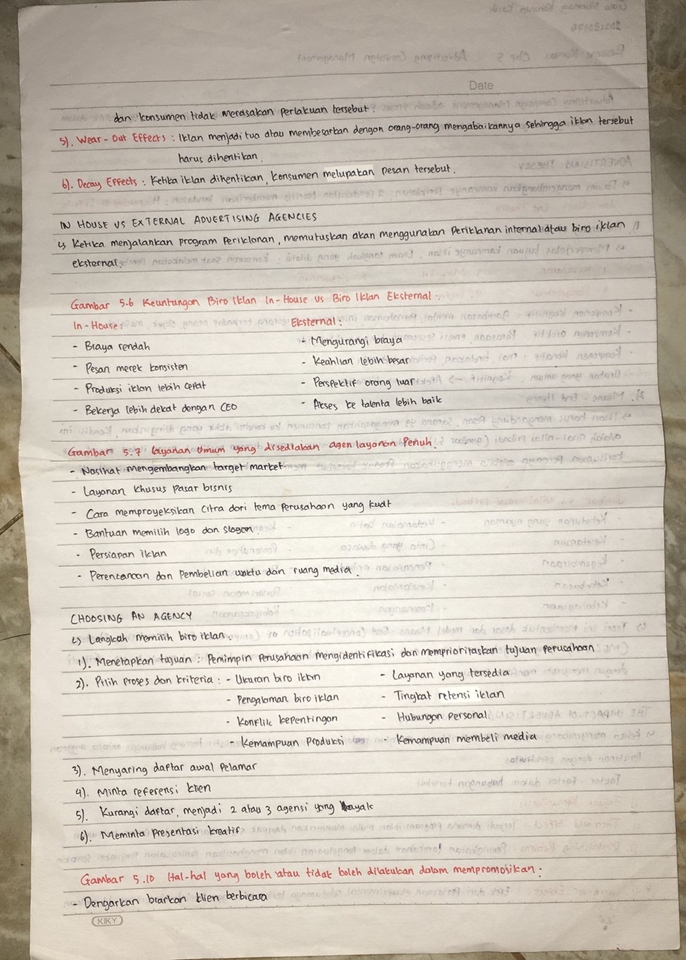 Date
dan konsumen tidak merasakan perlakuan tersebut.
5). Wear-Out Effects : Iklan menjadi tua atau membesarkan dengan orang-orang mengabaikannya sehingga iklan tersebut
harus dihentikan.
6). Decay Effects : Ketika iklan dihentikan, konsumen melupakan pesan tersebut.
IN HOUSE VS EXTERNAL ADVERTISING AGENCIES
↳ Ketika menjalankan program Periklanan, memutuskan akan menggunakan Periklanan internal atau biro iklan
eksternal.
Gambar 5.6 Keuntungan Biro Iklan In-House vs Biro Iklan Eksternal.
In-House : Eksternal :
- Biaya rendah - Mengurangi biaya
- Pesan merek konsisten - Keahlian lebih besar
- Produksi iklan lebih cepat - Perspektif orang luar
- Bekerja lebih dekat dengan CEO - Akses ke talenta lebih baik
Gambar 5.7 Layanan Umum yang disediakan agen layanan Penuh.
- Nasihat mengembangkan target market
- Layanan khusus pasar bisnis
- Cara memproyeksikan citra dari tema Perusahaan yang kuat
- Bantuan memilih logo dan slogan
- Persiapan iklan
- Perencanaan dan Pembelian waktu dan ruang media.
CHOOSING AN AGENCY
↳ Langkah memilih biro iklan.
1). Menetapkan tujuan : Pemimpin Perusahaan mengidentifikasi dan memprioritaskan tujuan perusahaan
2). Pilih proses dan kriteria : - Ukuran biro iklan - Layanan yang tersedia
- Pengalaman biro iklan - Tingkat retensi iklan
- Konflik kepentingan - Hubungan Personal
- Kemampuan Produksi - Kemampuan membeli media
3). Menyaring daftar awal Pelamar
4). Minta referensi klien
5). Kurangi daftar, menjadi 2 atau 3 agensi yang layak
6). Meminta presentasi kreatif
Gambar 5.10 Hal-hal yang boleh atau tidak boleh dilakukan dalam mempromosikan :
- Dengarkan biarkan klien berbicara
KIKY